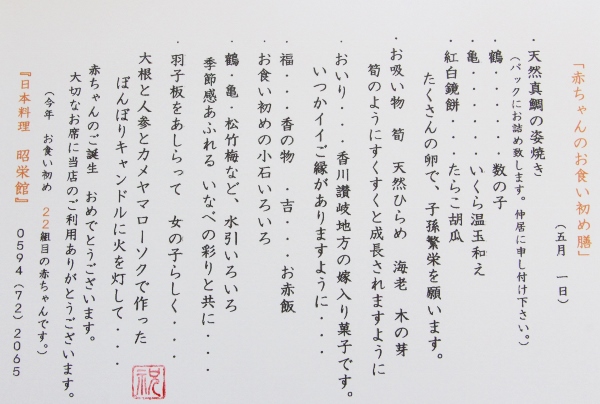 「赤ちゃんのお食い初め膳」
（五月　一日）
・天然真鯛の姿焼き
（パックにお詰め致します。仲居に申し付け下さい。）
・鶴・・・・・・数の子
・亀・・・・・・いくら温玉和え
・紅白鏡餅・・・・たらこ胡瓜
たくさんの卵で、子孫繁栄を願います。
・お吸い物　筍　天然ひらめ　海老　木の芽
筍のようにすくすくと成長されますように
・おいり・・・・香川讃岐地方の嫁入り菓子です。
いつかイイご縁がありますように・・・・
・福・・・・香の物　・吉・・・お赤飯
・お食い初めの小石いろいろ
・鶴・亀・松竹梅など、水引いろいろ
季節感あふれる　いなべの彩りと共に・・・・
・羽子板をあしらって　女の子らしく・・・・
大根と人参とカメヤマローソクで作った
ぼんぼりキャンドルに火を灯して・・・・
赤ちゃんのご誕生　おめでとうございます。
大切なお席に当店のご利用ありがとうございます。
（今年　お食い初め　２２組目の赤ちゃんです。）
『日本料理　昭栄館』　０５９４（７２）２０６５
祝